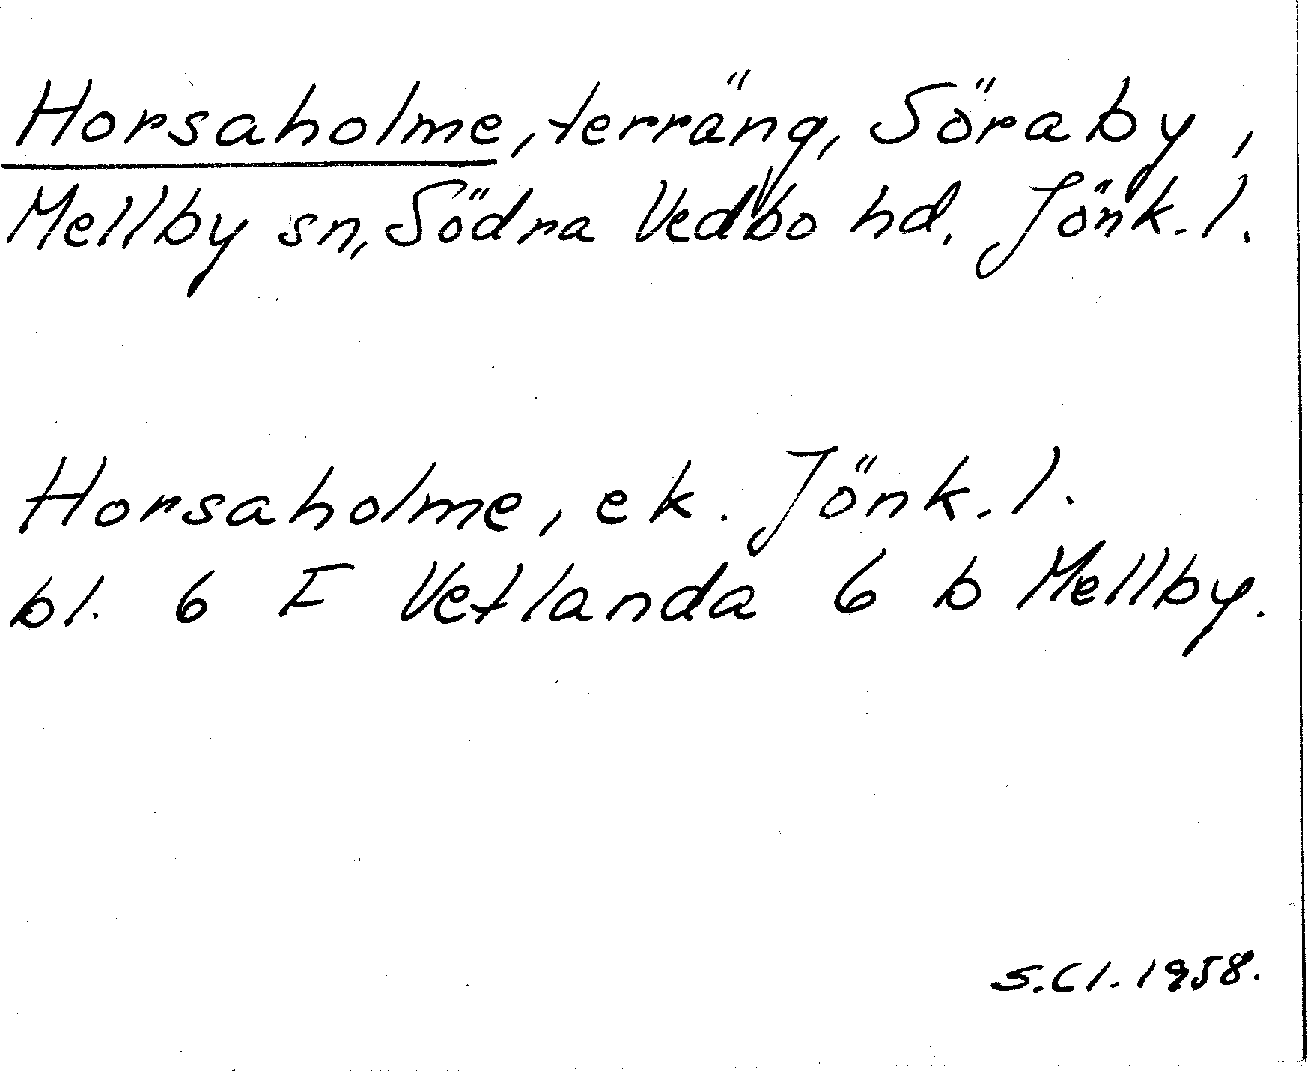 Horsaholme, terräng, Söraby,
Mellby sn, Södra Vedbo hd. Jönk. l.
Horsaholme, ek. Jönk. l.
bl. 6 F Vetlanda 6 b Mellby.
S. Cl. 1958.